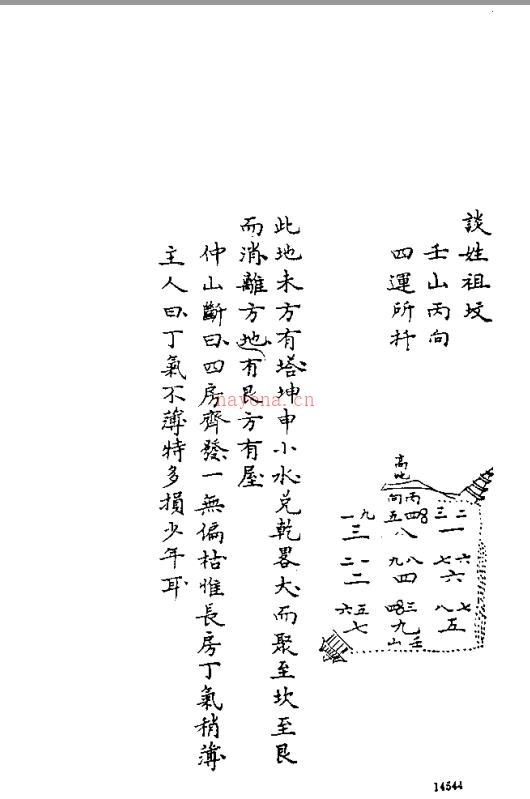 談姓祖坟
壬山丙向
四運所扦
高地
丙向
九一 三
四五 八
二三 一
一二 二
八九 四
六七 六
五六 七
三四 九
七八 五
壬山
此地未方有塔坤申小水兑乾畧大而聚至坎至艮
而消離方地有艮方有屋
仲山斷曰四房齊發一無偏枯惟長房丁氣稍薄
主人曰丁氣不薄特多損少年耳
nayona.cn
14544